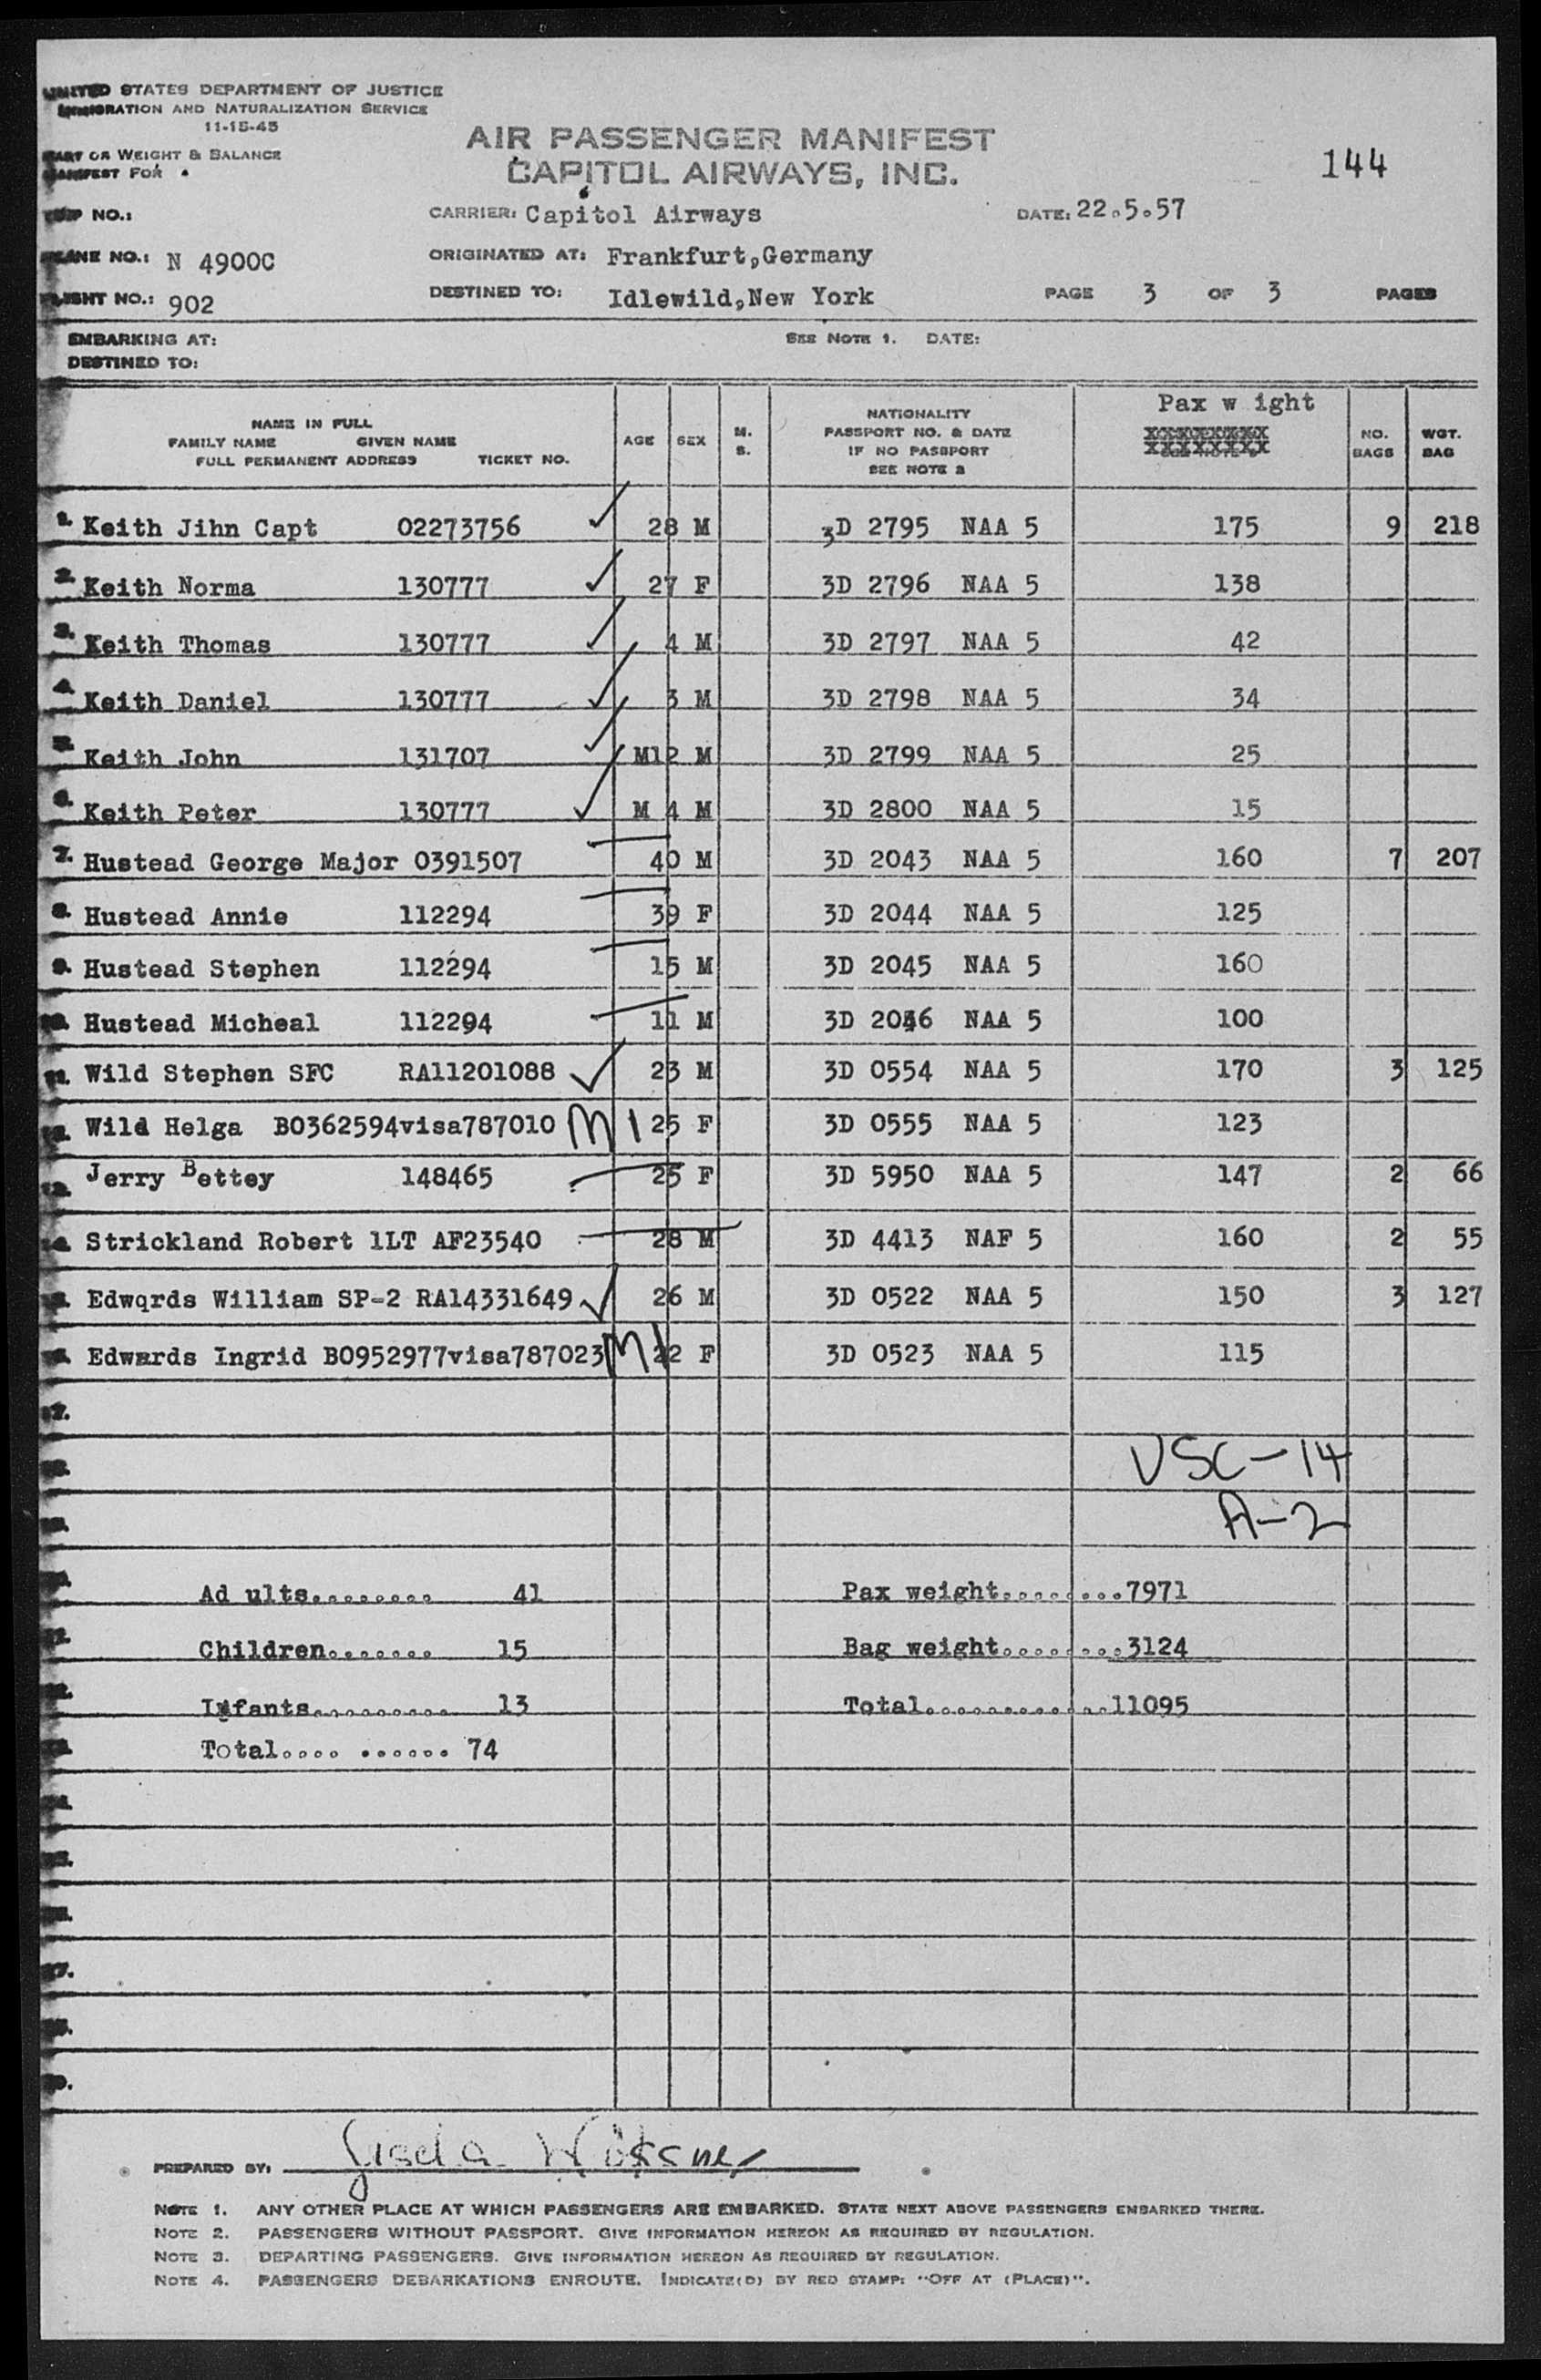 UNITED STATES DEPARTMENT OF JUSTICE
IMMIGRATION AND NATURALIZATION SERVICE
11-15-45
PART OR WEIGHT & BALANCE
MANIFEST FOR
AIR PASSENGER MANIFEST
CAPITOL AIRWAYS, INC.
144
TRIP NO.:
CARRIER: Capitol Airways
DATE: 22.5.57
PLANE NO.: N 4900C
ORIGINATED AT: Frankfurt,Germany
FLIGHT NO.: 902
DESTINED TO: Idlewild,New York
PAGE 3 OF 3 PAGES
EMBARKING AT:
SEE NOTE 1. DATE:
DESTINED TO:
NAME IN FULL
FAMILY NAME GIVEN NAME
FULL PERMANENT ADDRESS TICKET NO.
AGE SEX M. S.
NATIONALITY
PASSPORT NO. & DATE
IF NO PASSPORT
SEE NOTE 2
Pax w ight
XXXXXXXX
XXXXXXXX
NO. BAGS
WGT. BAG
1. Keith Jihn Capt 02273756 28 M 3D 2795 NAA 5 175 9 218
2. Keith Norma 130777 27 F 3D 2796 NAA 5 138
3. Keith Thomas 130777 4 M 3D 2797 NAA 5 42
4. Keith Daniel 130777 3 M 3D 2798 NAA 5 34
5. Keith John 131707 M12 M 3D 2799 NAA 5 25
6. Keith Peter 130777 M 4 M 3D 2800 NAA 5 15
7. Hustead George Major 0391507 40 M 3D 2043 NAA 5 160 7 207
8. Hustead Annie 112294 39 F 3D 2044 NAA 5 125
9. Hustead Stephen 112294 15 M 3D 2045 NAA 5 160
10. Hustead Micheal 112294 11 M 3D 2046 NAA 5 100
11. Wild Stephen SFC RA11201088 23 M 3D 0554 NAA 5 170 3 125
12. Wild Helga B0362594visa787010 M 1 25 F 3D 0555 NAA 5 123
13. Jerry Bettey 148465 25 F 3D 5950 NAA 5 147 2 66
14. Strickland Robert 1LT AF23540 28 M 3D 4413 NAF 5 160 2 55
15. Edwqrds William SP-2 RA14331649 26 M 3D 0522 NAA 5 150 3 127
16. Edwards Ingrid B0952977visa787023 M 1 22 F 3D 0523 NAA 5 115
17.
USC-14
A-2
Ad ults......... 41 Pax weight........7971
Children....... 15 Bag weight........3124
Infants.......... 13 Total............11095
Total.... ...... 74
PREPARED BY: Gisela
NOTE 1. ANY OTHER PLACE AT WHICH PASSENGERS ARE EMBARKED. STATE NEXT ABOVE PASSENGERS EMBARKED THERE.
NOTE 2. PASSENGERS WITHOUT PASSPORT. GIVE INFORMATION HEREON AS REQUIRED BY REGULATION.
NOTE 3. DEPARTING PASSENGERS. GIVE INFORMATION HEREON AS REQUIRED BY REGULATION.
NOTE 4. PASSENGERS DEBARKATIONS ENROUTE. INDICATE(D) BY RED STAMP: "OFF AT (PLACE)".